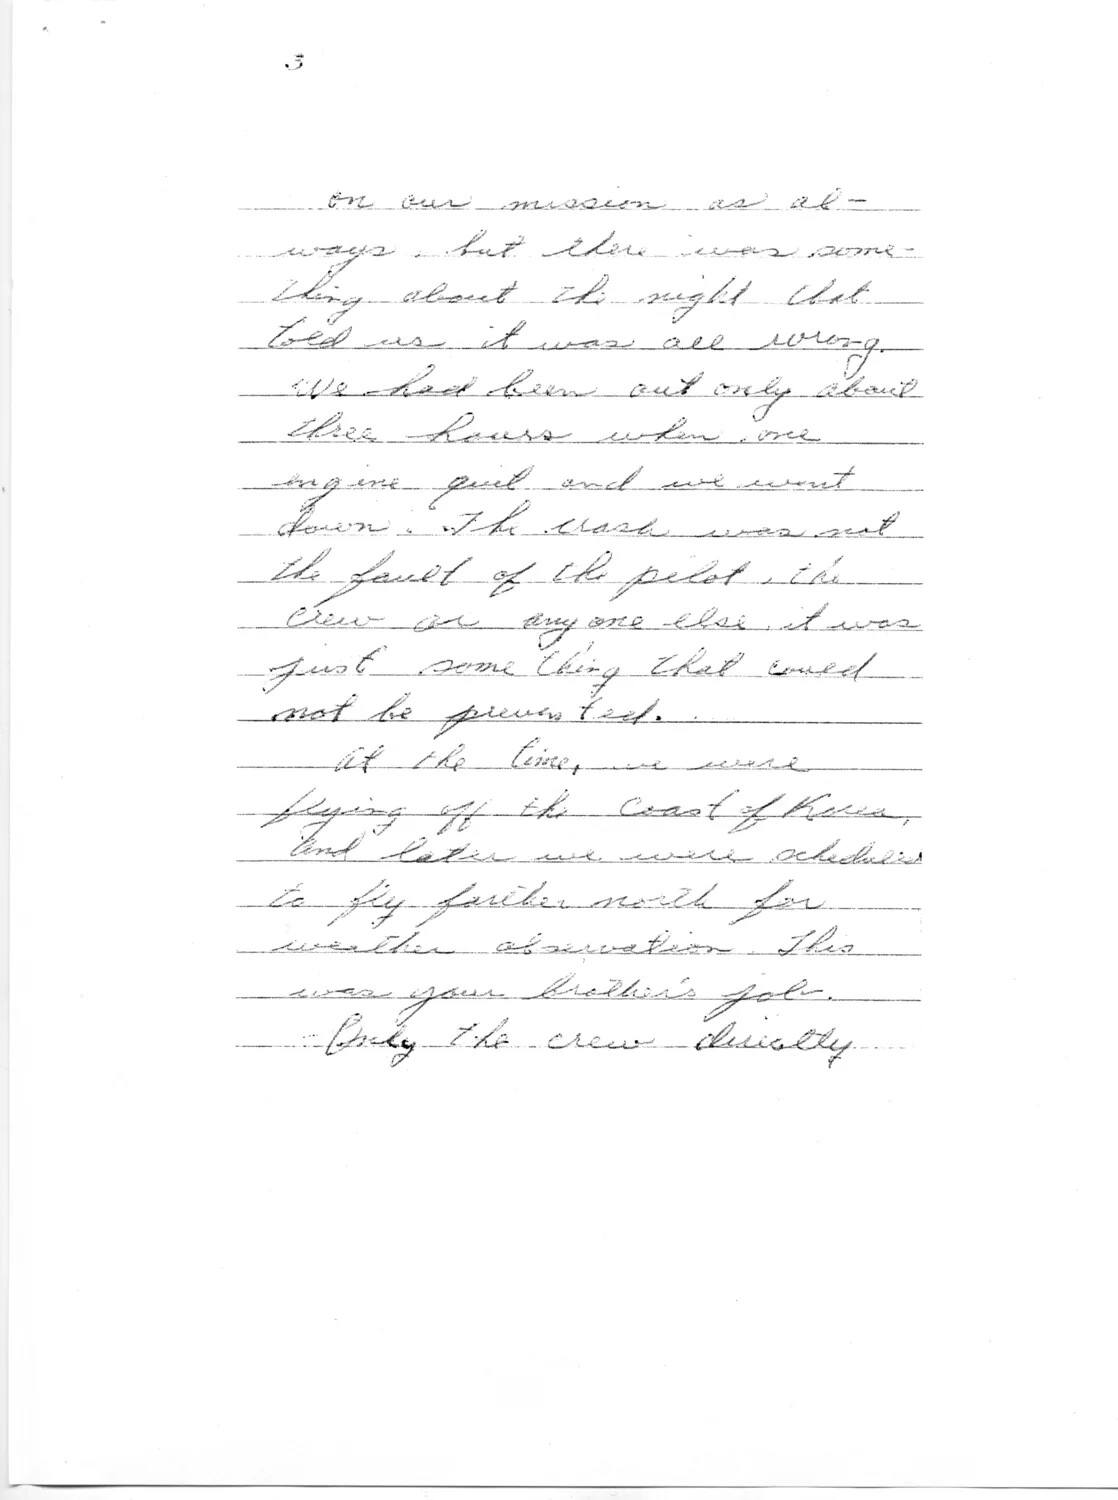 3
on our mission as al-
ways, but there was some-
thing about the night that
told us it was all wrong.
We had been out only about
three hours when one
engine quit and we went
down. The crash was not
the fault of the pilot, the
crew or anyone else, it was
just something that could
not be prevented.
At the time, we were
flying off the coast of Korea,
and later we were scheduled
to fly farther north for
weather observation. This
was your brother's job.
Only the crew directly